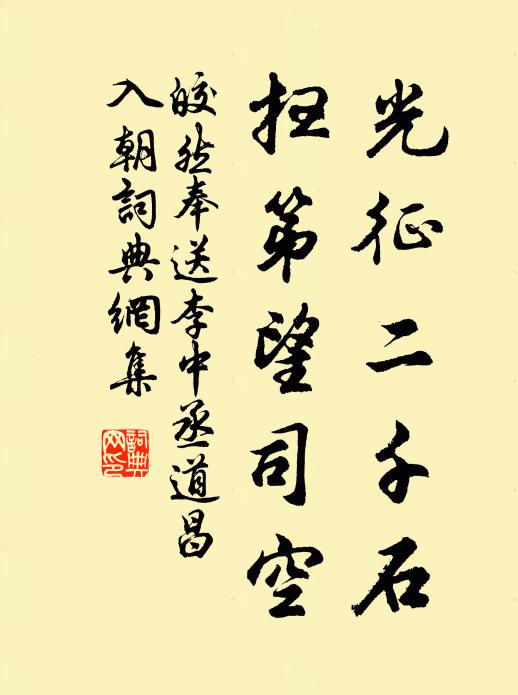 光征二千石
扫第望司空
皎然奉送李中丞道昌
入朝詞典網集
詞典网印